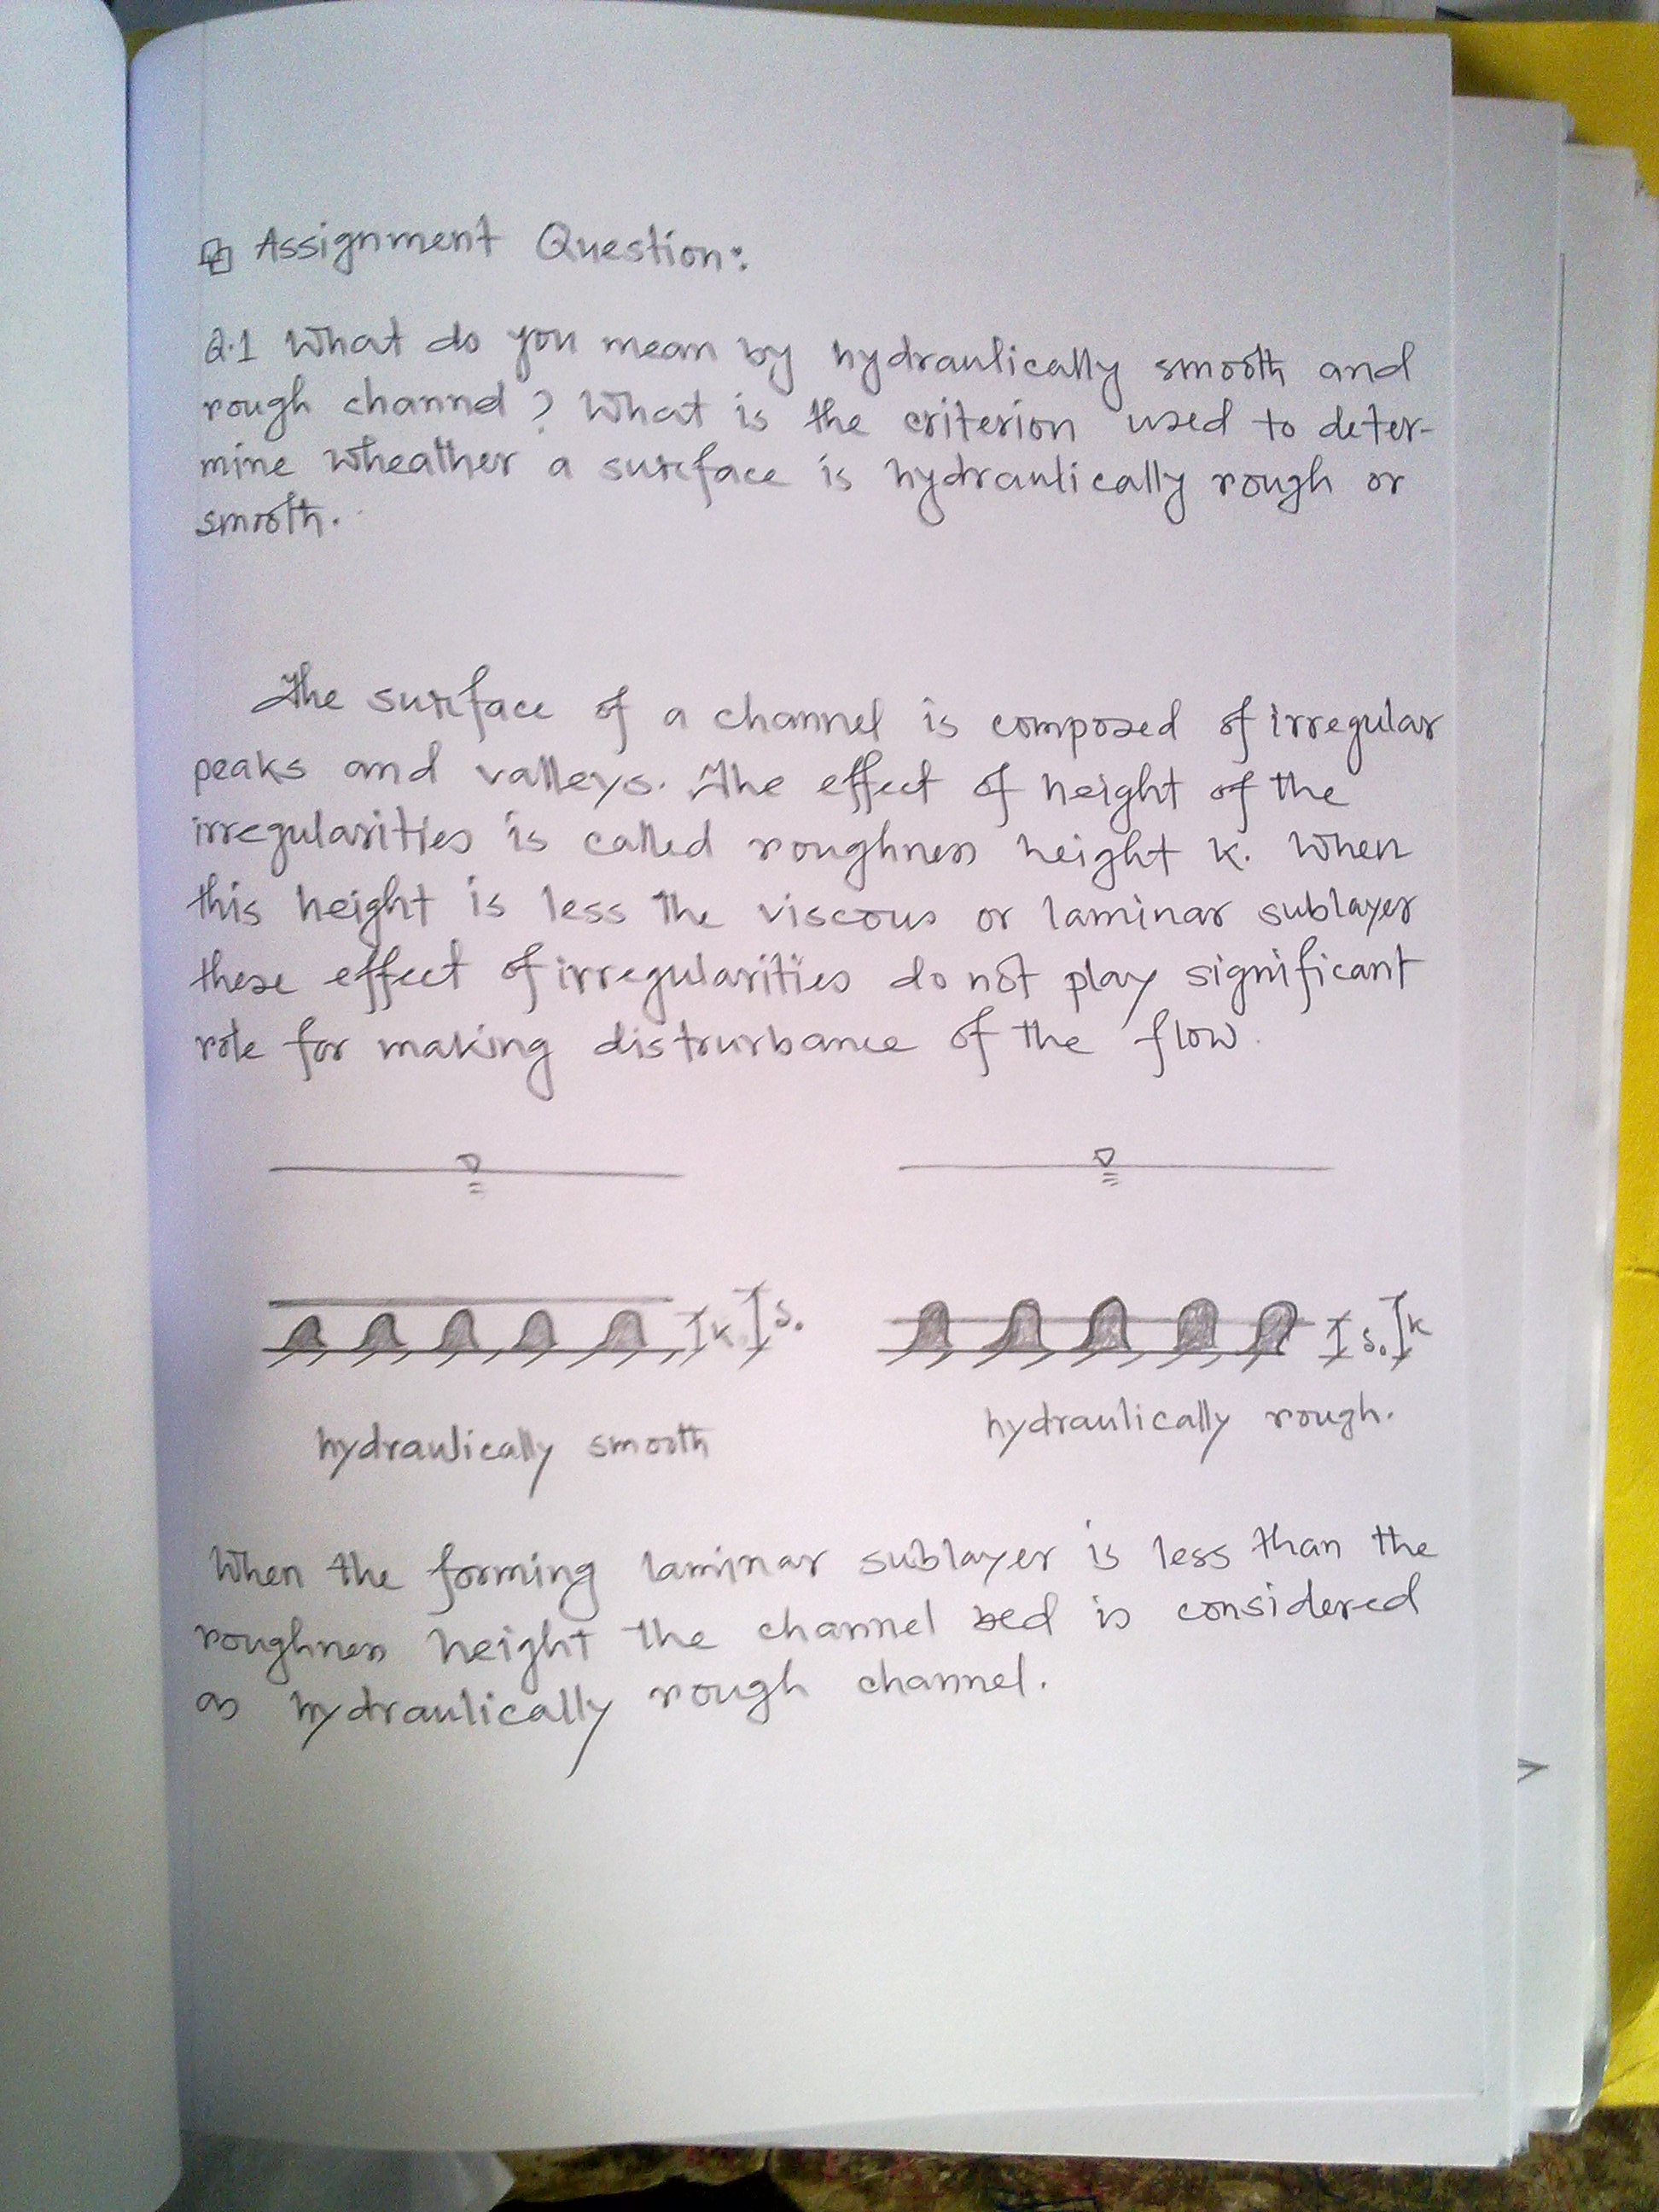 Assignment Question:
Q.1 What do you mean by hydraulically smooth and
rough channel? What is the criterion used to deter-
mine wheather a surface is hydraulically rough or
smooth.
The surface of a channel is composed of irregular
peaks and valleys. The effect of height of the
irregularities is called roughness height k. When
this height is less the viscous or laminar sublayer
these effect of irregularities do not play significant
role for making distrurbance of the flow.
k δ₀
δ₀ k
hydraulically smooth
hydraulically rough.
When the forming laminar sublayer is less than the
roughness height the channel bed is considered
as hydraulically rough channel.